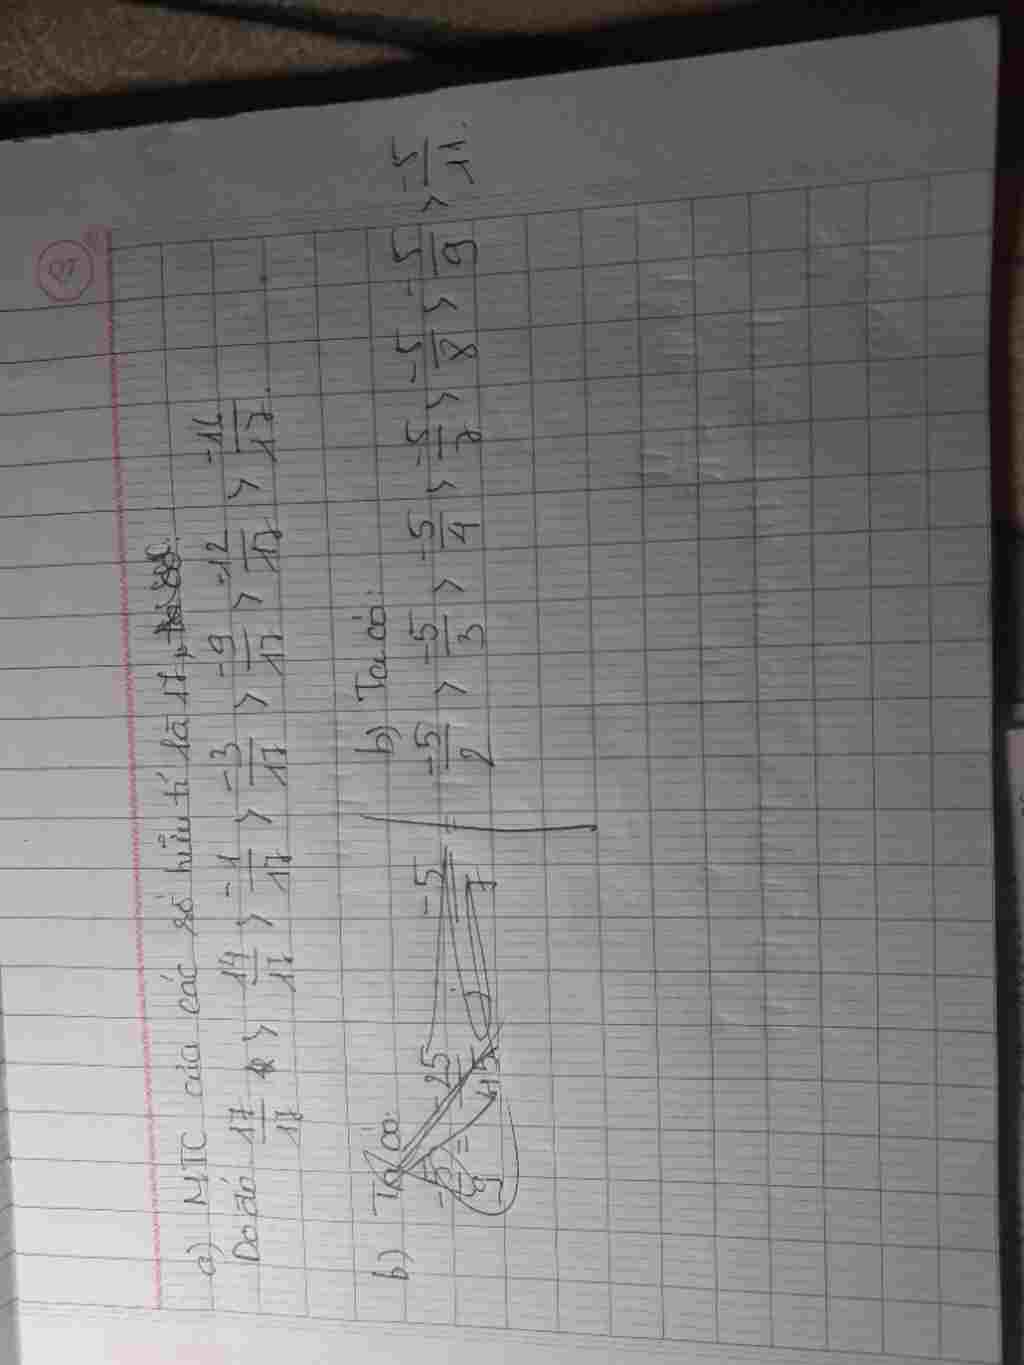 a) MTC của các số hữu tỉ là 17,
Do đó 17/17 > 14/17 > -1/17 > -3/17 > -9/17 > -12/17 > -16/17.
b) Ta có:
-5/9 = -25/45 -5/7 =
b) Ta có:
-5/2 > -5/3 > -5/4 > -5/7 > -5/8 > -5/9 > -5/11.